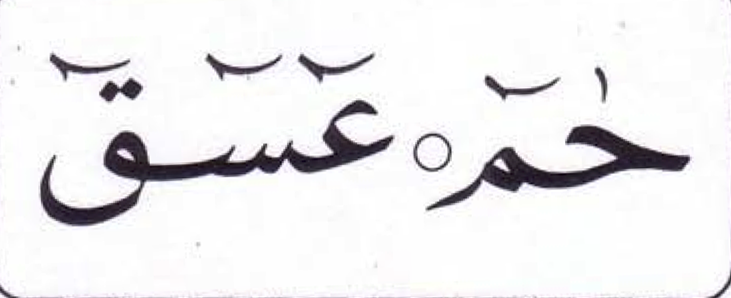 حٰمٓ ○ عٓسٓقٓ